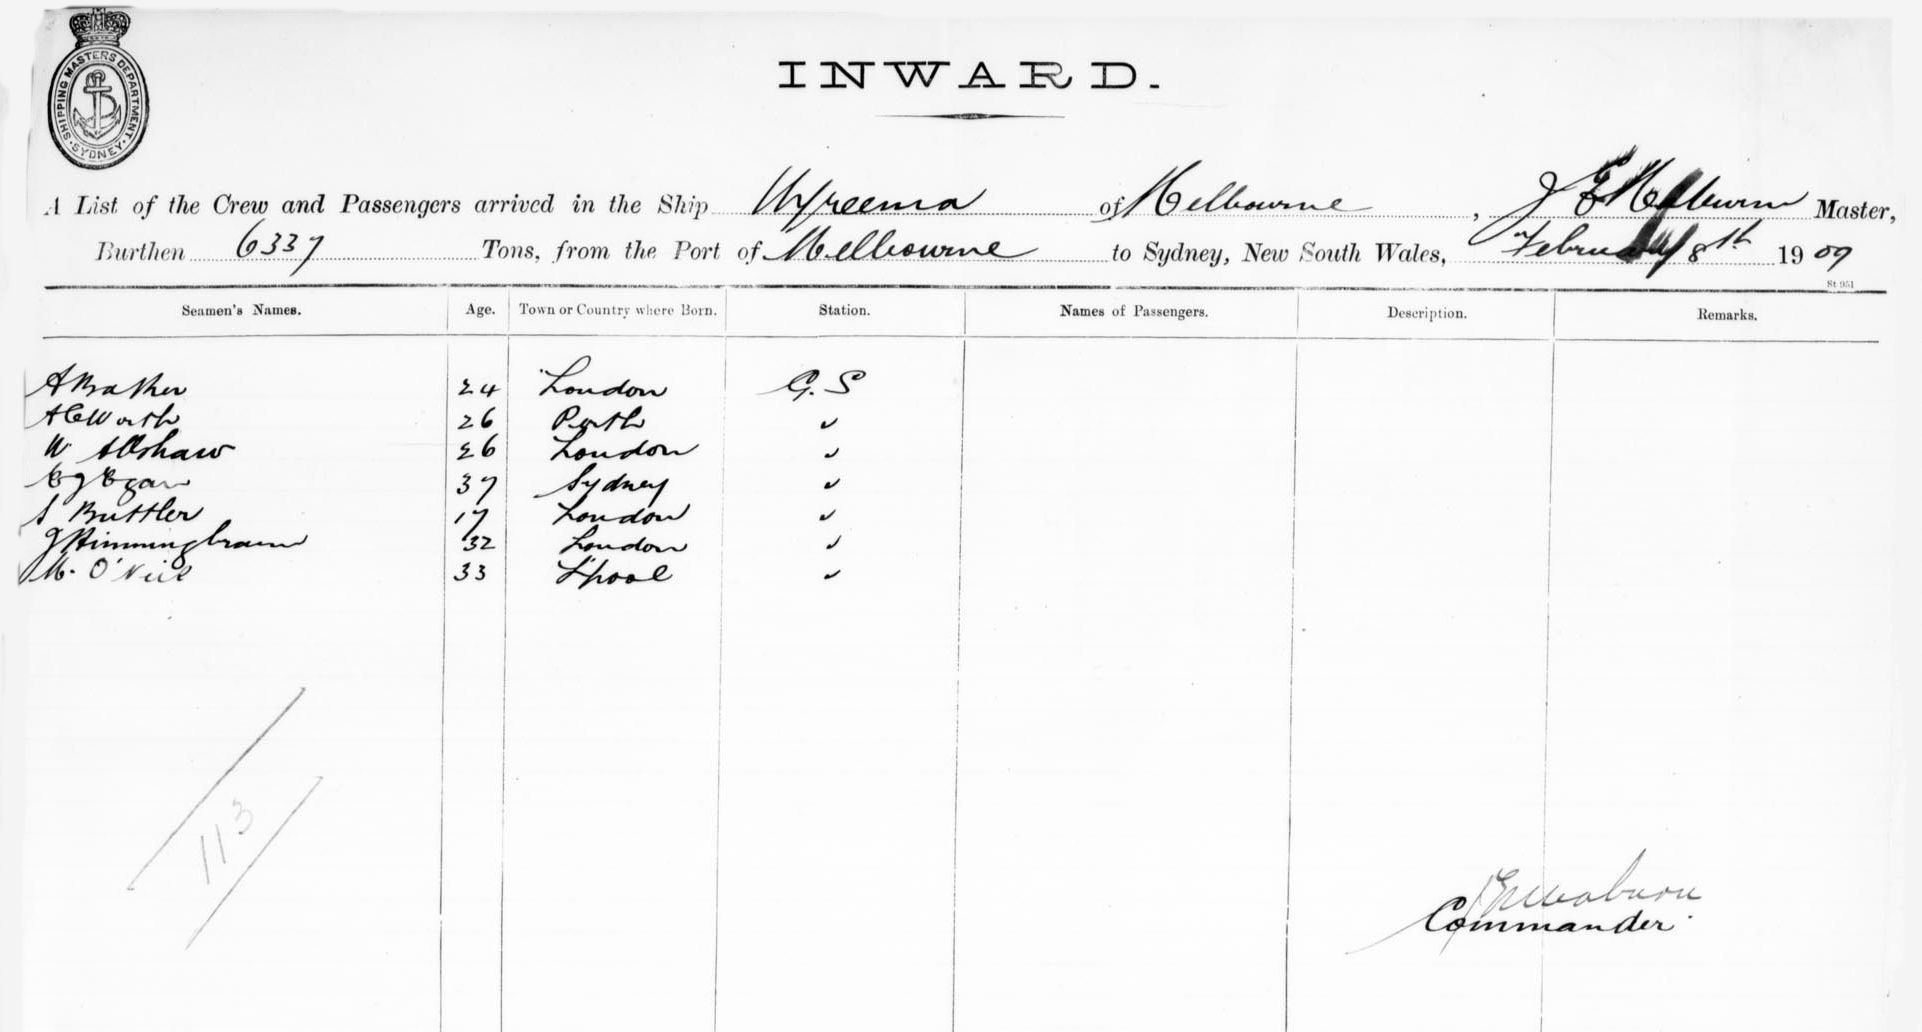 SHIPPING MASTERS DEPARTMENT · SYDNEY ·
INWARD.
A List of the Crew and Passengers arrived in the Ship Wyreema of Melbourne, J E Meaburn Master,
Burthen 6337 Tons, from the Port of Melbourne to Sydney, New South Wales, February 8th 1909
St 951
Seamen's Names. Age. Town or Country where Born. Station. Names of Passengers. Description. Remarks.
A Baker 24 London G. S
A C Worth 26 Perth "
W Allshaw 26 London "
C J Egan 37 Sydney "
S Buttler 17 London "
J Himmingbrawn 32 London "
M. O'Neil 33 L'pool "
113
J E Meaburn
Commander.